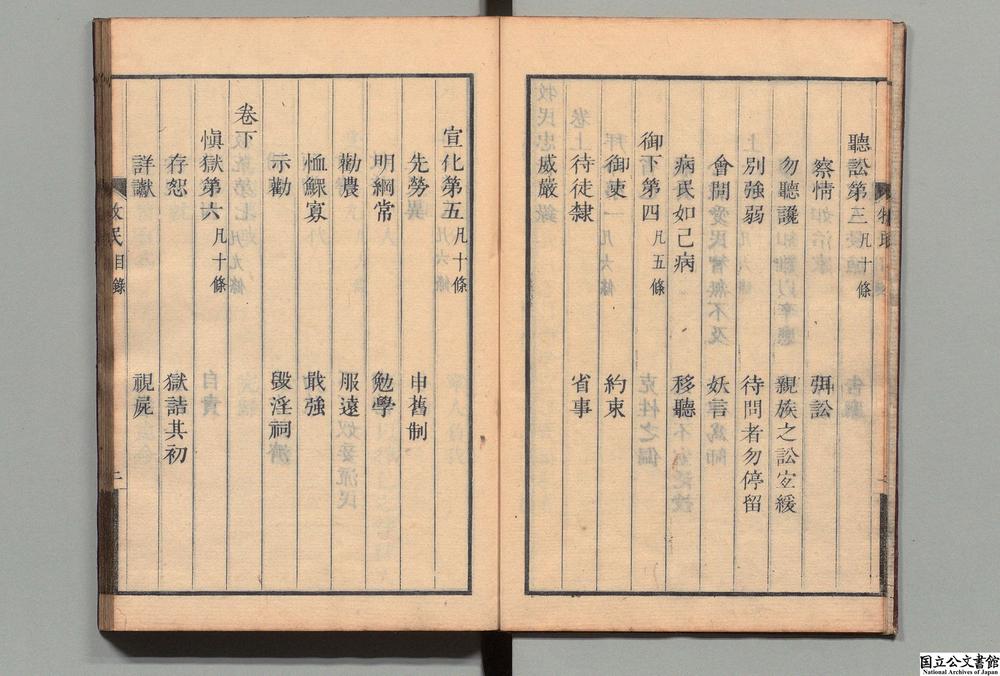 聽訟第三 凡十條
察情 弭訟
勿聽讒 親族之訟宜緩
別強弱 待問者勿停留
會問 妖言
病民如己病 移聽
御下第四 凡五條
御吏 約束
待徒隸 省事
威嚴
宣化第五 凡十條
先勞 申舊制
明綱常 勉學
勸農 服遠
恤鰥寡 戢強
示勸 毀淫祠
卷下
愼獄第六 凡十條
存恕 獄詰其初
詳讞 視屍
牧民 目錄 二
国立公文書館
National Archives of Japan